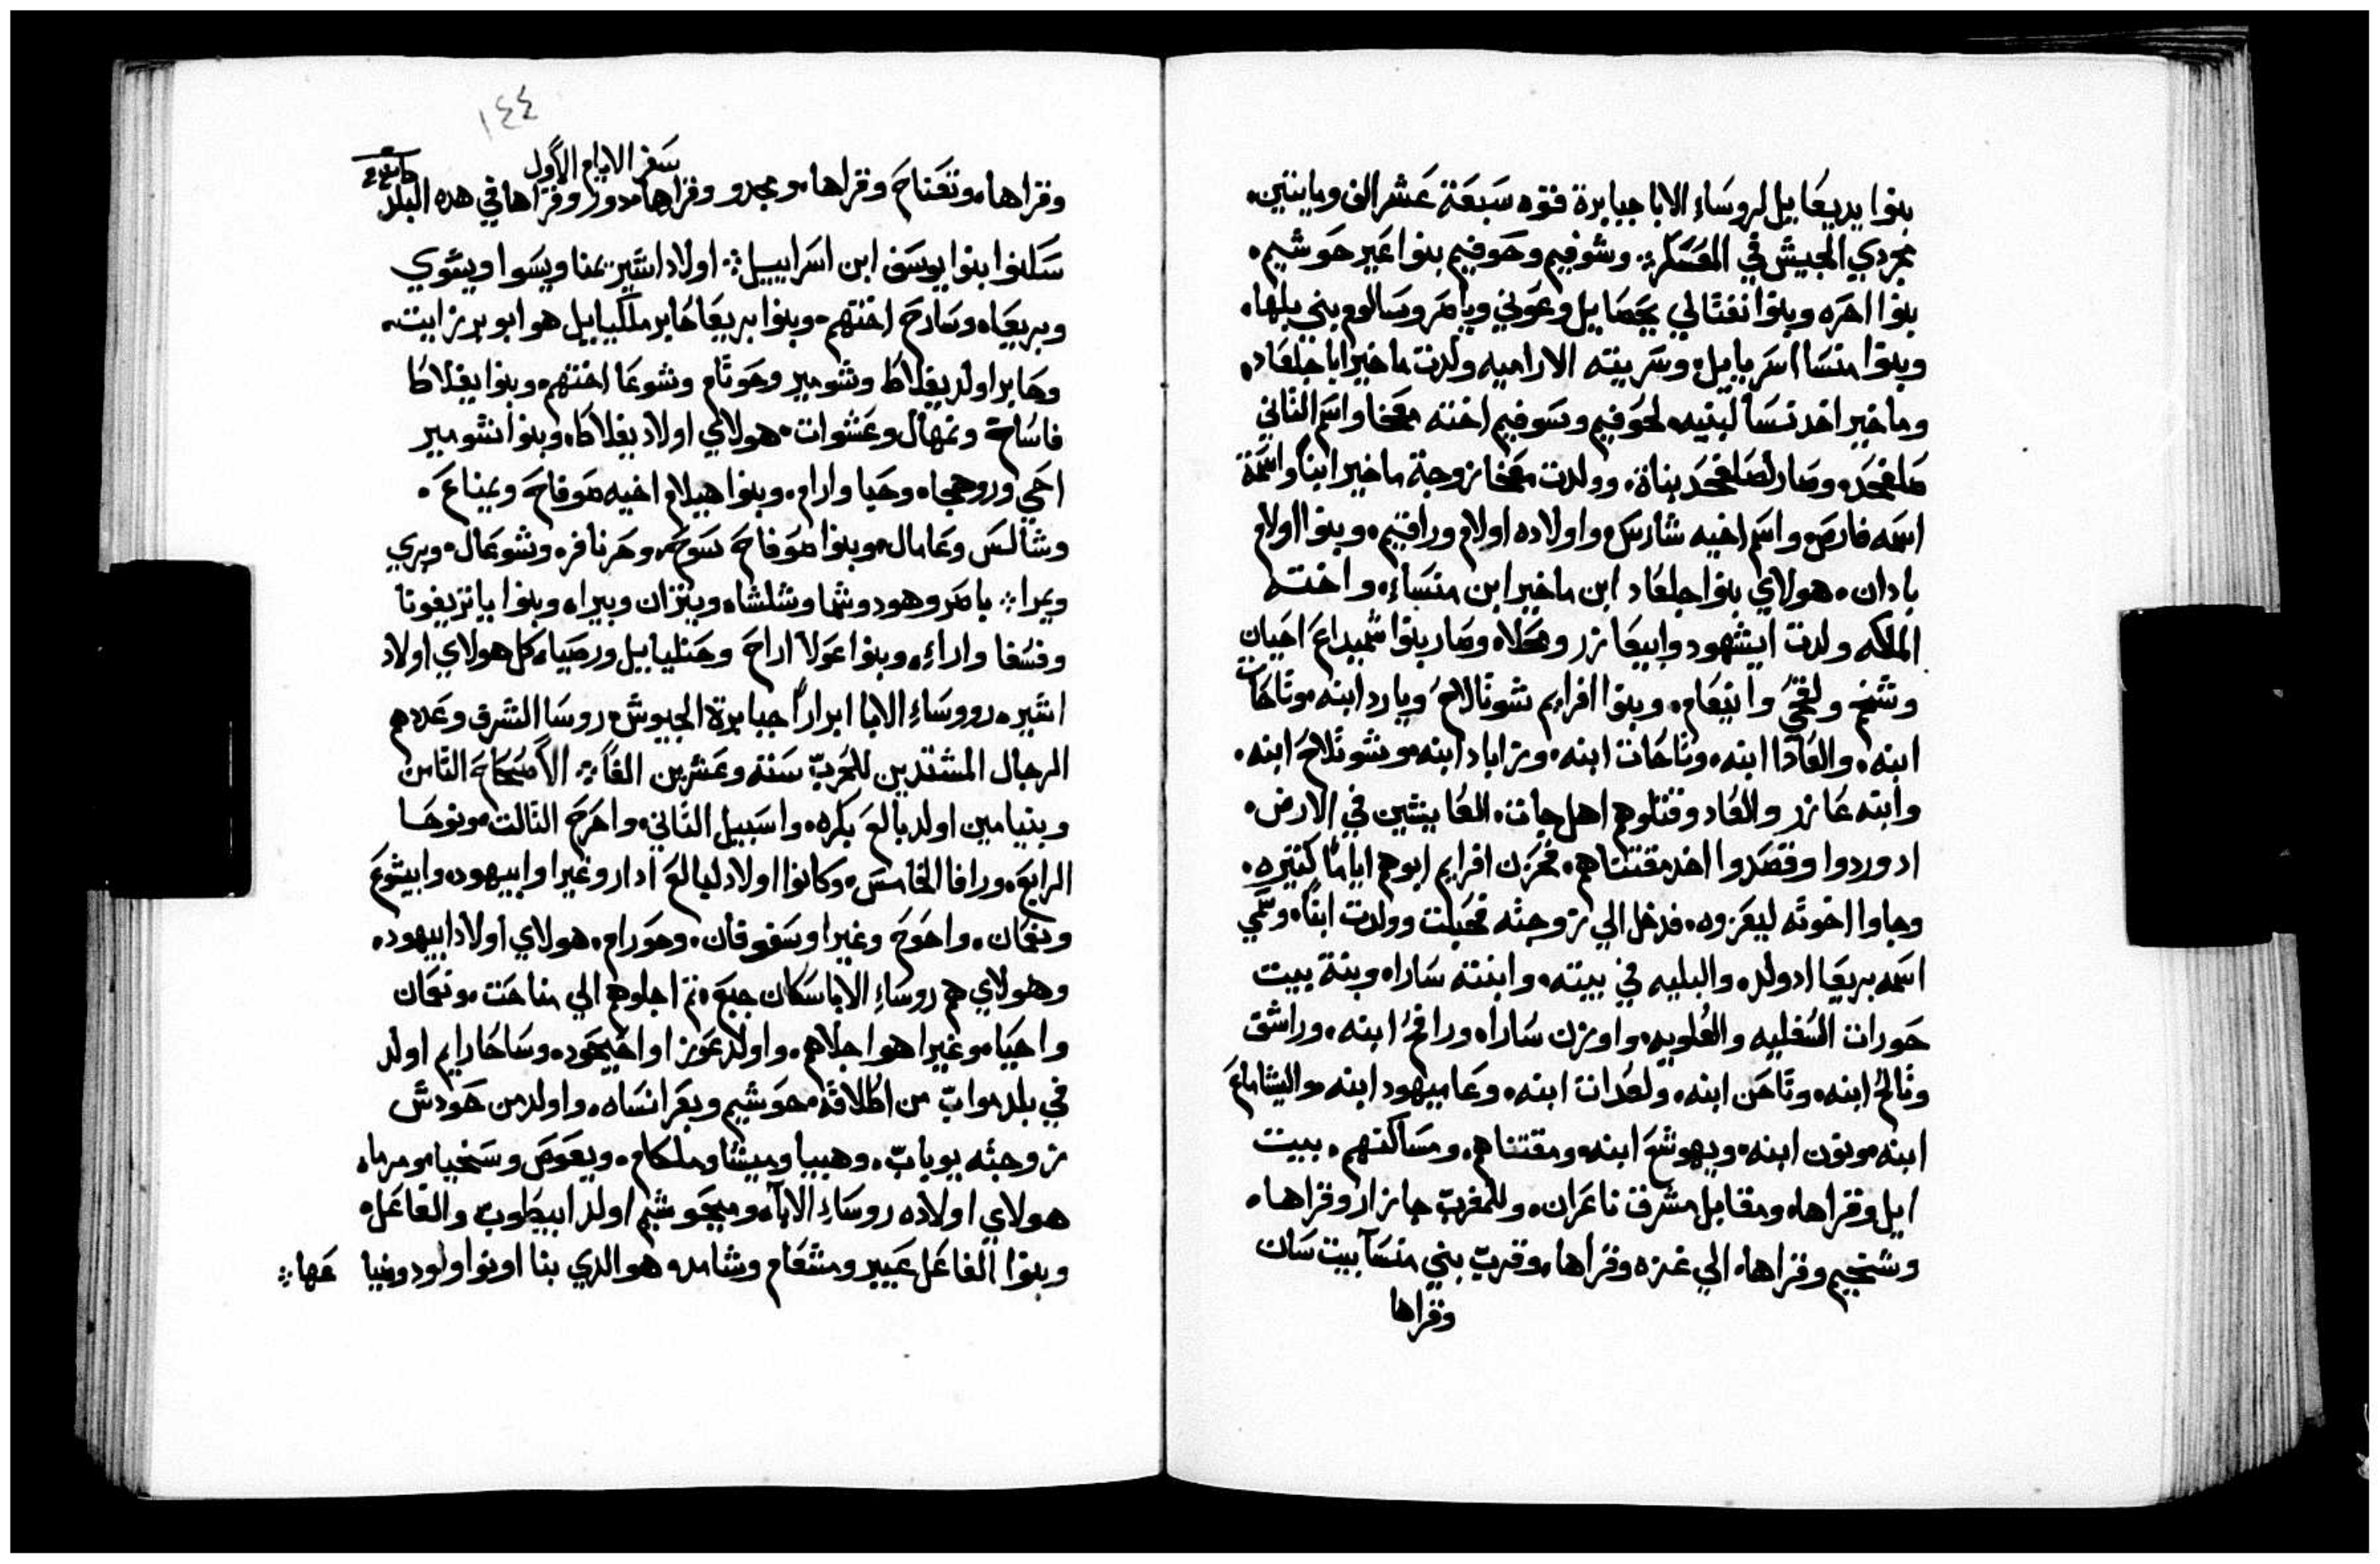 بنوا يديعاييل لروساء الابا جبابرة قوه سبعة عشر الف ومايتين.
مجردي الجيش في العسكر. وشوفيم وحوفيم بنوا عير حوشيم.
بنوا احره وبنوا نفتالي يحصاييل وعوني ويامر وسالوم بني بلها.
وبنوا منسا اسريابيل وسريته الاراميه ولدت ماخير ابا جلعاد.
وماخير اخد نسا لبنيه لحوفيم وسوفيم اخته معخا واسم التاني
صلفحد. وصار لصلفحد بناة. وولدت معخا زوجة ماخير ابنا واسمة
اسمه فارص واسم اخيه شارس واولاده اولام وراقيم. وبنوا اولام
بادان. هولاي بنوا جلعاد ابن ماخير ابن منساء. واخته
الملكه ولدت ايشهود وابيعازر ومحلاه وصار بنوا شميداع احيان
وشخم ولقحي وانيعام. وبنوا افرايم شوتالاح ويارد ابنه موتاحات
ابنه. والعادا ابنه. وتاحات ابنه. وزاباد ابنه. وشوتلاح ابنه.
وابنه عازر والعاد وقتلوهم اهل جات. العاييتين في الارض.
اد وردوا وقصدوا اخد مقتناهم. فحزن افرايم ابوهم اياما كتيره.
وجاوا اخوته ليعزوه. فدخل الي زوجته فحبلت وولدت ابنا. وسمي
اسمه بريعا اد ولد. والبليه في بيته. وابنته ساراه وبنة بيت
حوران السفليه والعلويه. واوزن ساراه ورافح ابنه. وراشق
وتالح ابنه. وتاحن ابنه. ولعدان ابنه. وعاميهود ابنه. واليشاماع
ابنه. ونون ابنه. ويهوشع ابنه. ومقتناهم. ومساكنهم. ببيت
ايل وقراها. ومقابل مشرق ناعران. وللمغرب جازار وقراها.
وشخيم وقراها. الي غزه وقراها. وقرب بني منسا بيت سان
وقراها
١٤٤
سفر الايام الاول
وقراها. وتعناح وقراها. ومجدو وقراها. دور وقراها في هده البلد
سكنوا بنوا يوسف ابن اسراييل. اولاد اشير يمنا ويسوا ويشوي
وبريعاه وسارح اختهم. وبنوا بريعا حابر ملكيابيل هو ابو برزايت.
وحابر اولد يفلاط وشومير وحوتام وشوعا اختهم. وبنوا يفلاطا
فاساخ ونمهال وعشوات. هولاي اولاد يفلاطا. وبنوا شومير
احي وروهجاه. وحبا وارام. وبنوا هيلام اخيه صوفاح ويمناع.
وشالس وعامال. وبنوا صوفاح سوح. وحرنافر. وشوعال. وبري
ويمرا. باصر وهود وشما وشلشاه ويتران وبيراه وبنوا ياتر يفونا
وفسفا واراء. وبنوا عولا اراح وحنليابيل ورصياه. كل هولاي اولاد
اشير. رووساء الابا ابرارا جبابرة الجيوش. روسا الشرف وعددهم
الرجال المشتدين للحرب ستة وعشرين الفا. الاصحاح التامن
وبنيامين اولد بالع بكره. واسبيل التاني. واحرح التالت. ونوحا
الرابع. ورافا الخامس. وكانوا اولاد لبالع ادار وغيرا وابيهود. وابيشوع
ونعمان. واحوح وغيرا وسفوفان. وحورام. هولاي اولاد ابيهود.
وهولاي هم روساء الابا سكان جبع. تم اجلوهم الي مناحت. ونعمان
واحيا. وغيرا هو اجلاهم. واولد عوزا واحيحود. وساحارايم اولد
في بلد مواب من اطلاقه. حوشيم وبعرا نساه. واولد من حودش
زوجته يوياب. وهيبيا وميشا وملكام. ويعوص وسخيا. ومرماه
هولاي اولاده روساء الاباء. ومن حوشيم اولد ابيطوب والفاعل.
وبنوا الفاعل عيبر ومشعام وشامد هو الدي بنا اونوا ولود ومنيا